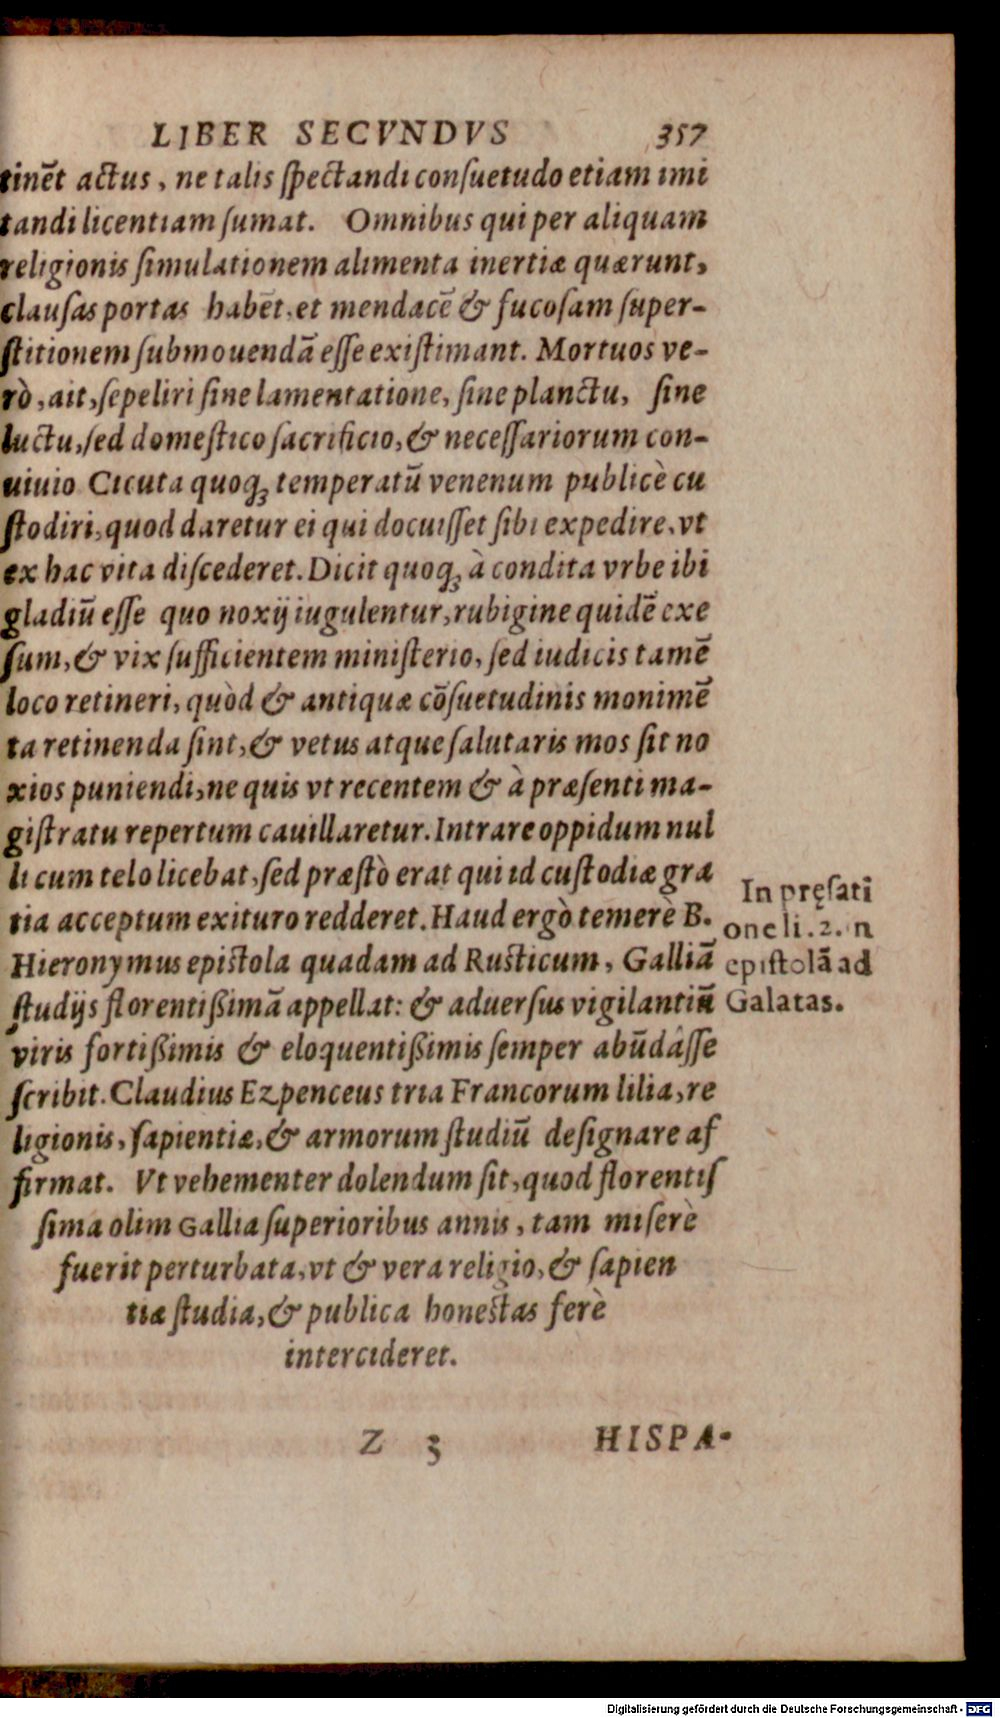 LIBER SECVNDVS 357
tinēt actus, ne talis spectandi consuetudo etiam imi
tandi licentiam sumat. Omnibus qui per aliquam
religionis simulationem alimenta inertiæ quærunt,
clausas portas habēt, et mendacē & fucosam super-
stitionem submouendā esse existimant. Mortuos ve-
rò, ait, sepeliri sine lamentatione, sine planctu, sine
luctu, sed domestico sacrificio, & necessariorum con-
uiuio Cicuta quoqꝫ temperatū venenum publicè cu
stodiri, quod daretur ei qui docuisset sibi expedire, vt
ex hac vita discederet. Dicit quoqꝫ à condita vrbe ibi
gladiū esse quo noxij iugulentur, rubigine quidē exe
sum, & vix sufficientem ministerio, sed iudicis tamē
loco retineri, quòd & antiquæ cōsuetudinis monimē
ta retinenda sint, & vetus atque salutaris mos sit no
xios puniendi, ne quis vt recentem & à præsenti ma-
gistratu repertum cauillaretur. Intrare oppidum nul
li cum telo licebat, sed præstò erat qui id custodiæ gra
tia acceptum exituro redderet. Haud ergò temerè B.
Hieronymus epistola quadam ad Rusticum, Galliā
studijs florentißimā appellat: & aduersus vigilantiū
viris fortißimis & eloquentißimis semper abūdâsse
scribit. Claudius Ezpenceus tria Francorum lilia, re
ligionis, sapientiæ, & armorum studiū designare af
firmat. Vt vehementer dolendum sit, quod florentis
sima olim Gallia superioribus annis, tam miserè
fuerit perturbata, vt & vera religio, & sapien
tiæ studia, & publica honestas ferè
intercideret.
In pręfatī
one li. 2. n
epistolā ad
Galatas.
Z 3 HISPA-
Digitalisierung gefördert durch die Deutsche Forschungsgemeinschaft - DFG